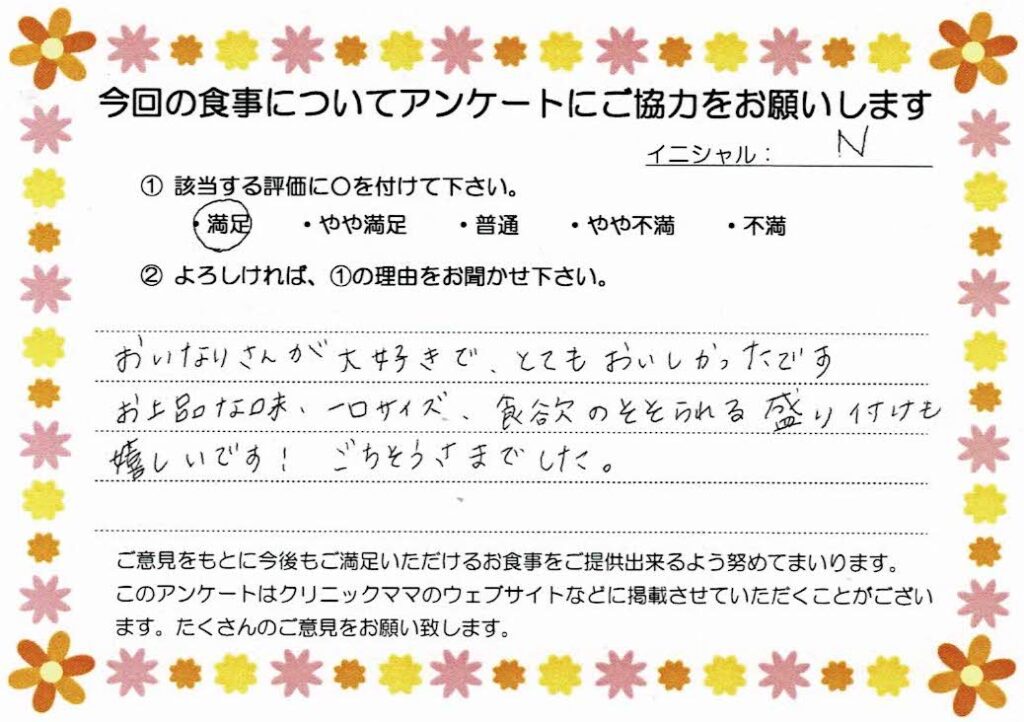 今回の食事についてアンケートにご協力をお願いします
イニシャル： N
① 該当する評価に〇を付けて下さい。
・満足 ・やや満足 ・普通 ・やや不満 ・不満
② よろしければ、①の理由をお聞かせ下さい。
おいなりさんが大好きで、とてもおいしかったです
お上品な味、一口サイズ、食欲のそそられる盛り付けも
嬉しいです！ ごちそうさまでした。
ご意見をもとに今後もご満足いただけるお食事をご提供出来るよう努めてまいります。
このアンケートはクリニックママのウェブサイトなどに掲載させていただくことがござい
ます。たくさんのご意見をお願い致します。